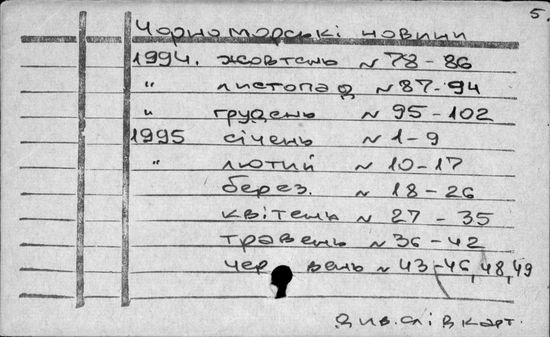 5.
Чорноморські новини
1994. жовтень № 78-86
" листопад № 87-94
" грудень № 95-102
1995 січень № 1-9
" лютий № 10-17
берез. № 18-26
квітень № 27-35
травень № 36-42
червень № 43-46, 48, 49
див. слід карт.